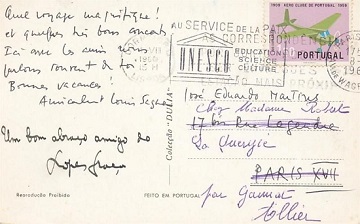 Quel voyage magnifique!
et quelques très bons concerts.
Ici avec les amis nous
parlons souvent de toi.
Bonnes vacances!
Amicalement Louis
Um bom abraço amigo do
Lopes Graça
Reprodução Proibida
Colecção «DULIA»
FEITO EM PORTUGAL
AU SERVICE DE LA PAIX
UNESCO
EDUCATION
SCIENCE
CULTURE
CORRESPONDENCIA
1909 AERO CLUBE DE PORTUGAL 1969
PORTUGAL
José Eduardo Martins
Chez Madame
17 bis Rue
PARIS XVII
par Gannat
Allier